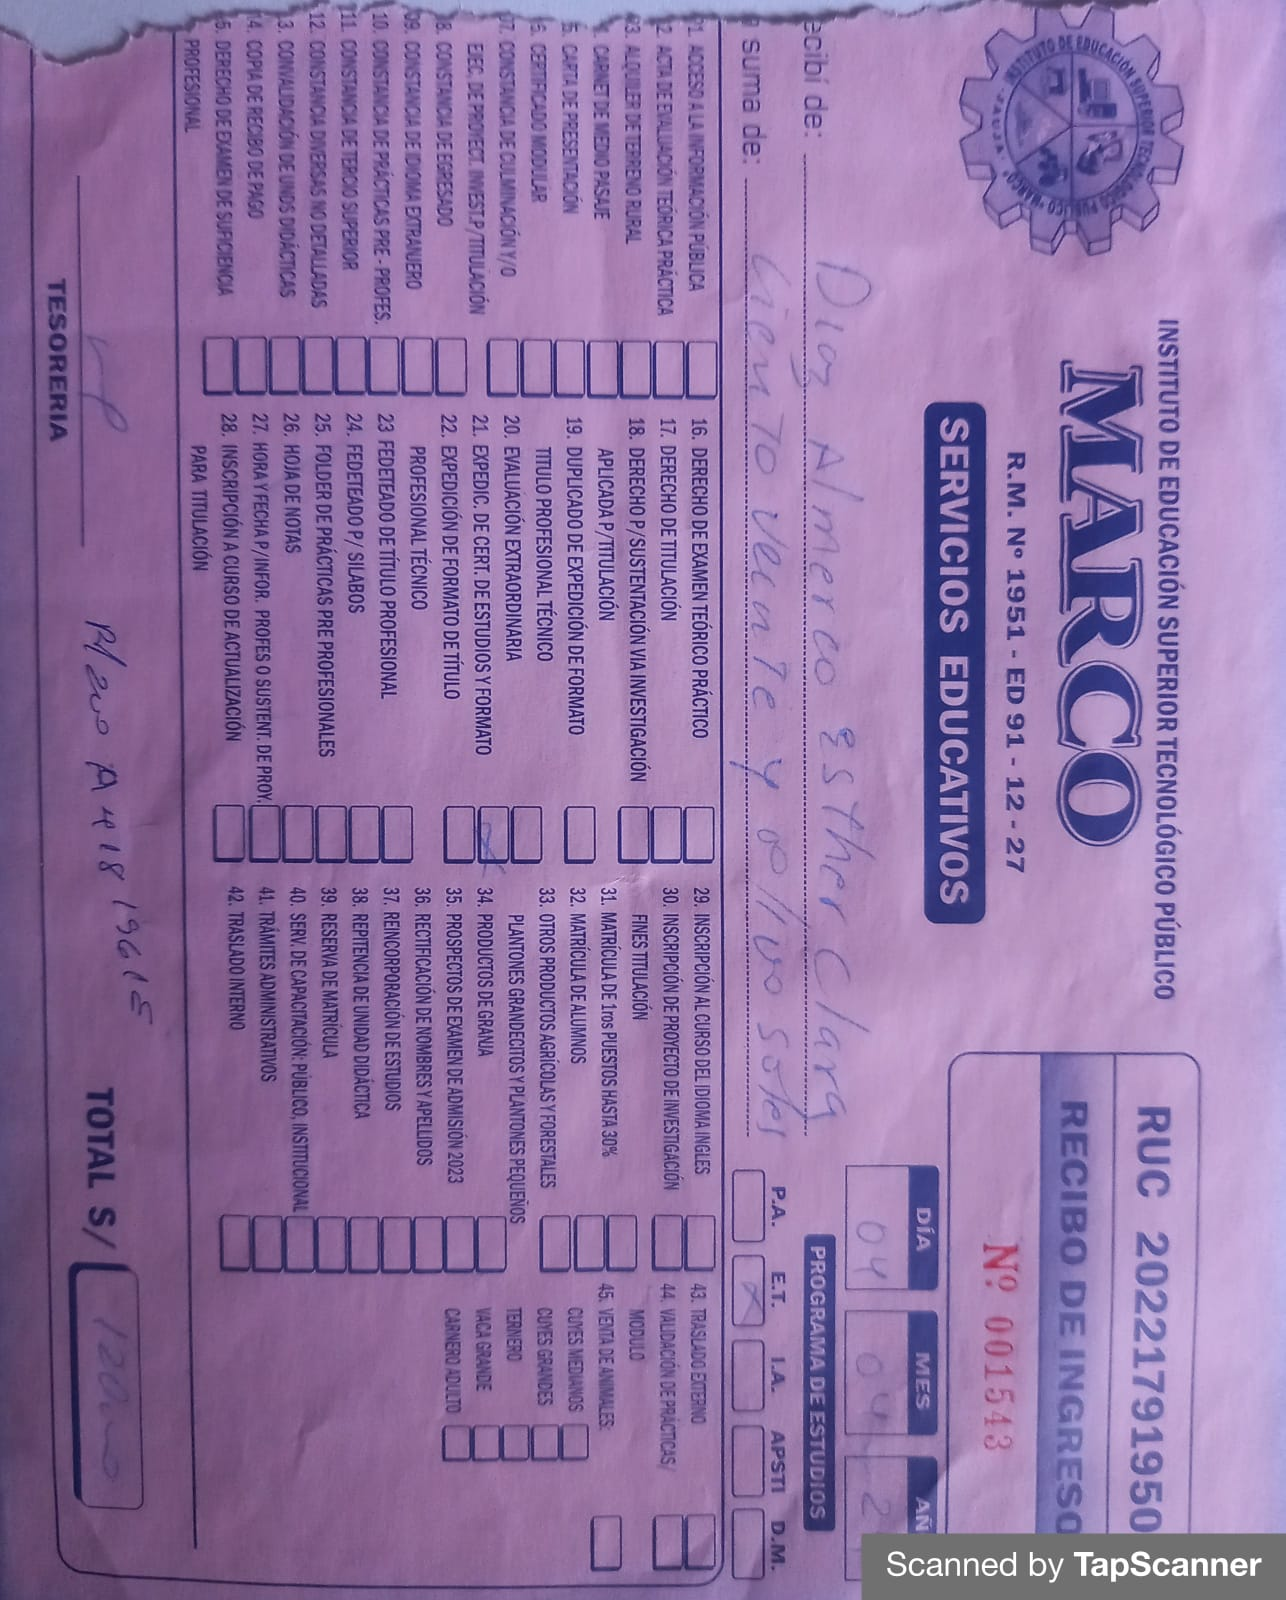 INSTITUTO DE EDUCACIÓN SUPERIOR TECNOLÓGICO PÚBLICO
MARCO
R.M. Nº 1951 - ED 91 - 12 - 27
SERVICIOS EDUCATIVOS
RUC 20221791950
RECIBO DE INGRESO
Nº 001543
DÍA MES AÑ
04 04 2
ecibí de: Díaz Almerco Esther Clara
suma de: Ciento veinte y ocho soles
PROGRAMA DE ESTUDIOS
P.A. E.T. X I.A. APSTI D.M.
1. ACCESO A LA INFORMACIÓN PÚBLICA
2. ACTA DE EVALUACIÓN TEÓRICA PRÁCTICA
03. ALQUILER DE TERRENO RURAL
CARNET DE MEDIO PASAJE
5. CARTA DE PRESENTACIÓN
6. CERTIFICADO MODULAR
07. CONSTANCIA DE CULMINACIÓN Y/O
EJEC. DE PROYECT. INVEST.P/TITULACIÓN
8. CONSTANCIA DE EGRESADO
09. CONSTANCIA DE IDIOMA EXTRANJERO
10. CONSTANCIA DE PRÁCTICAS PRE - PROFES.
11. CONSTANCIA DE TERCIO SUPERIOR
12. CONSTANCIA DIVERSAS NO DETALLADAS
3. CONVALIDACIÓN DE UNIDS DIDÁCTICAS
4. COPIA DE RECIBO DE PAGO
5. DERECHO DE EXAMEN DE SUFICIENCIA
PROFESIONAL
16. DERECHO DE EXAMEN TEÓRICO PRÁCTICO
17. DERECHO DE TITULACIÓN
18. DERECHO P/SUSTENTACIÓN VIA INVESTIGACIÓN
APLICADA P/TITULACIÓN
19. DUPLICADO DE EXPEDICIÓN DE FORMATO
TITULO PROFESIONAL TÉCNICO
20. EVALUACIÓN EXTRAORDINARIA
21. EXPEDIC. DE CERT. DE ESTUDIOS Y FORMATO
22. EXPEDICIÓN DE FORMATO DE TÍTULO
PROFESIONAL TÉCNICO
23 FEDETEADO DE TÍTULO PROFESIONAL
24. FEDETEADO P/ SILABOS
25. FOLDER DE PRÁCTICAS PRE PROFESIONALES
26. HOJA DE NOTAS
27. HORA Y FECHA P/INFOR. PROFES O SUSTENT. DE PROY.
28. INSCRIPCIÓN A CURSO DE ACTUALIZACIÓN
PARA TITULACIÓN
29. INSCRIPCIÓN AL CURSO DEL IDIOMA INGLES
30. INSCRIPCIÓN DE PROYECTO DE INVESTIGACIÓN
FINES TITULACIÓN
31. MATRÍCULA DE 1ros PUESTOS HASTA 30%
32. MATRÍCULA DE ALUMNOS
33. OTROS PRODUCTOS AGRÍCOLAS Y FORESTALES
PLANTONES GRANDECITOS Y PLANTONES PEQUEÑOS
34. PRODUCTOS DE GRANJA
35. PROSPECTOS DE EXAMEN DE ADMISIÓN 2023
36. RECTIFICACIÓN DE NOMBRES Y APELLIDOS
37. REINCORPORACIÓN DE ESTUDIOS
38. REPITENCIA DE UNIDAD DIDÁCTICA
39. RESERVA DE MATRÍCULA
40. SERV. DE CAPACITACIÓN: PÚBLICO, INSTITUCIONAL
41. TRÁMITES ADMINISTRATIVOS
42. TRASLADO INTERNO
43. TRASLADO EXTERNO
44. VALIDACIÓN DE PRÁCTICAS/
MODULO
45. VENTA DE ANIMALES:
CUYES MEDIANOS
CUYES GRANDES
TERNERO
VACA GRANDE
CARNERO ADULTO
TESORERIA
TOTAL S/
Scanned by TapScanner